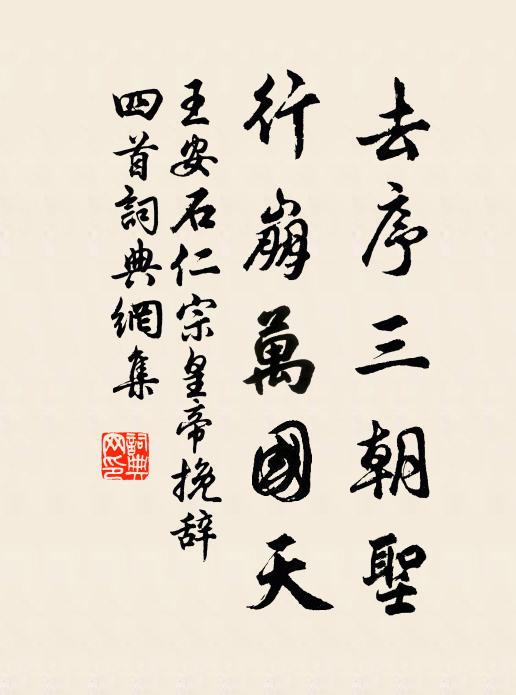 去序三朝聖
行崩萬國天
王安石仁宗皇帝挽辞
四首詞典網集
詞典
网印